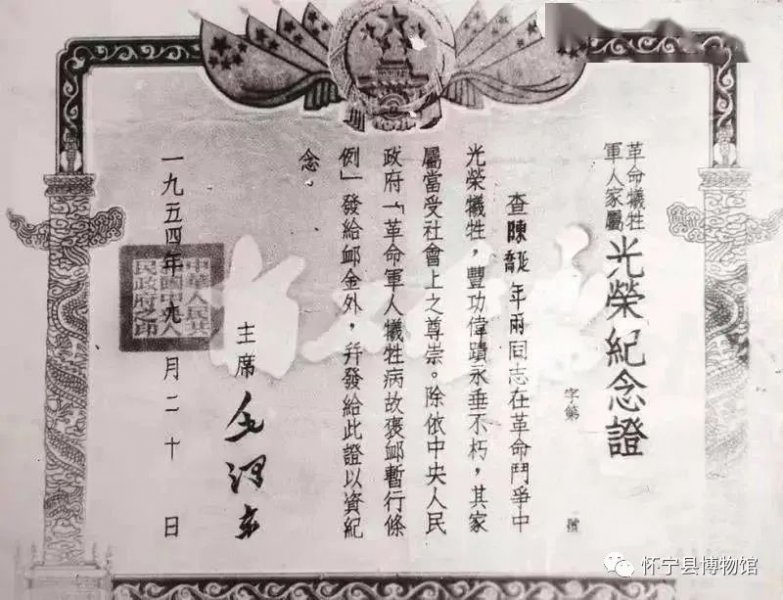 革命犧牲
軍人家屬
光榮紀念證
字第 號
查陳延喬年兩同志在革命鬥爭中
光榮犧牲,豐功偉蹟永垂不朽,其家
屬當受社會上之尊崇。除依中央人民
政府「革命軍人犧牲病故褒卹暫行條
例」發給卹金外,幷發給此證以資紀
念。
主席 毛澤东
一九五四年九月二十日
中華人民共
和國中央人
民政府之印
怀宁县博物馆